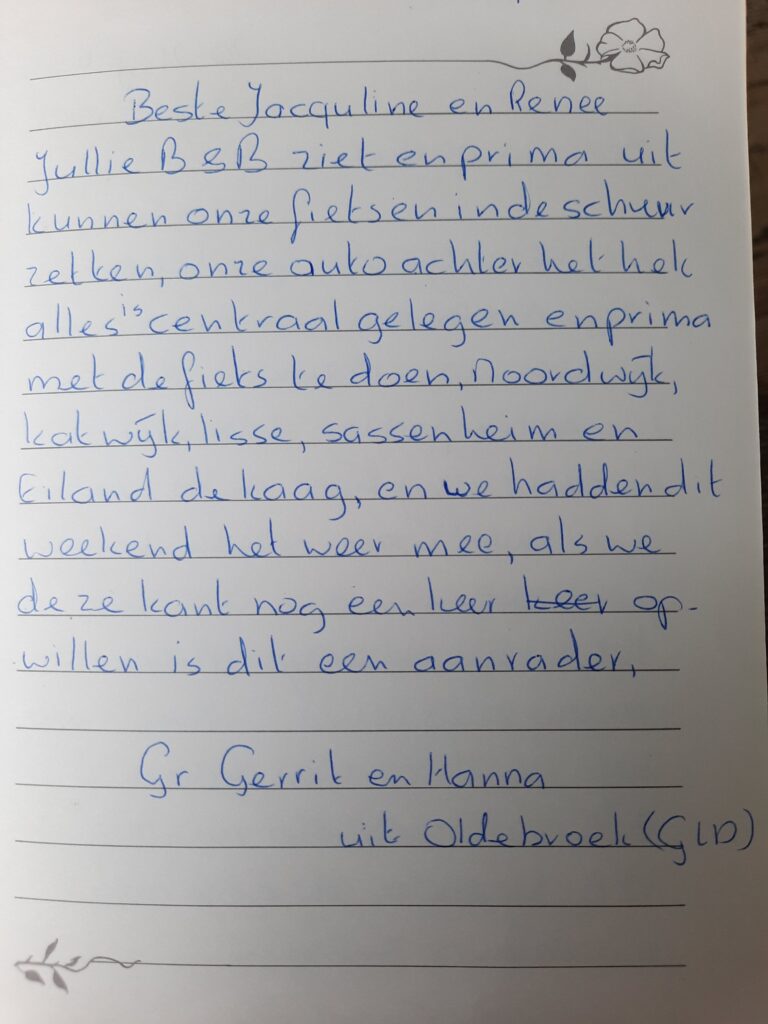 Beste Jacquline en Renee
Jullie B&B ziet en prima uit
kunnen onze fietsen in de schuur
zetten, onze auto achter het hek
alles is centraal gelegen en prima
met de fiets te doen, Noordwijk,
katwijk, lisse, sassenheim en
Eiland de kaag, en we hadden dit
weekend het weer mee, als we
deze kant nog een keer keer op-
willen is dit een aanrader,
Gr Gerrit en Hanna
uit Oldebroek (GLD)